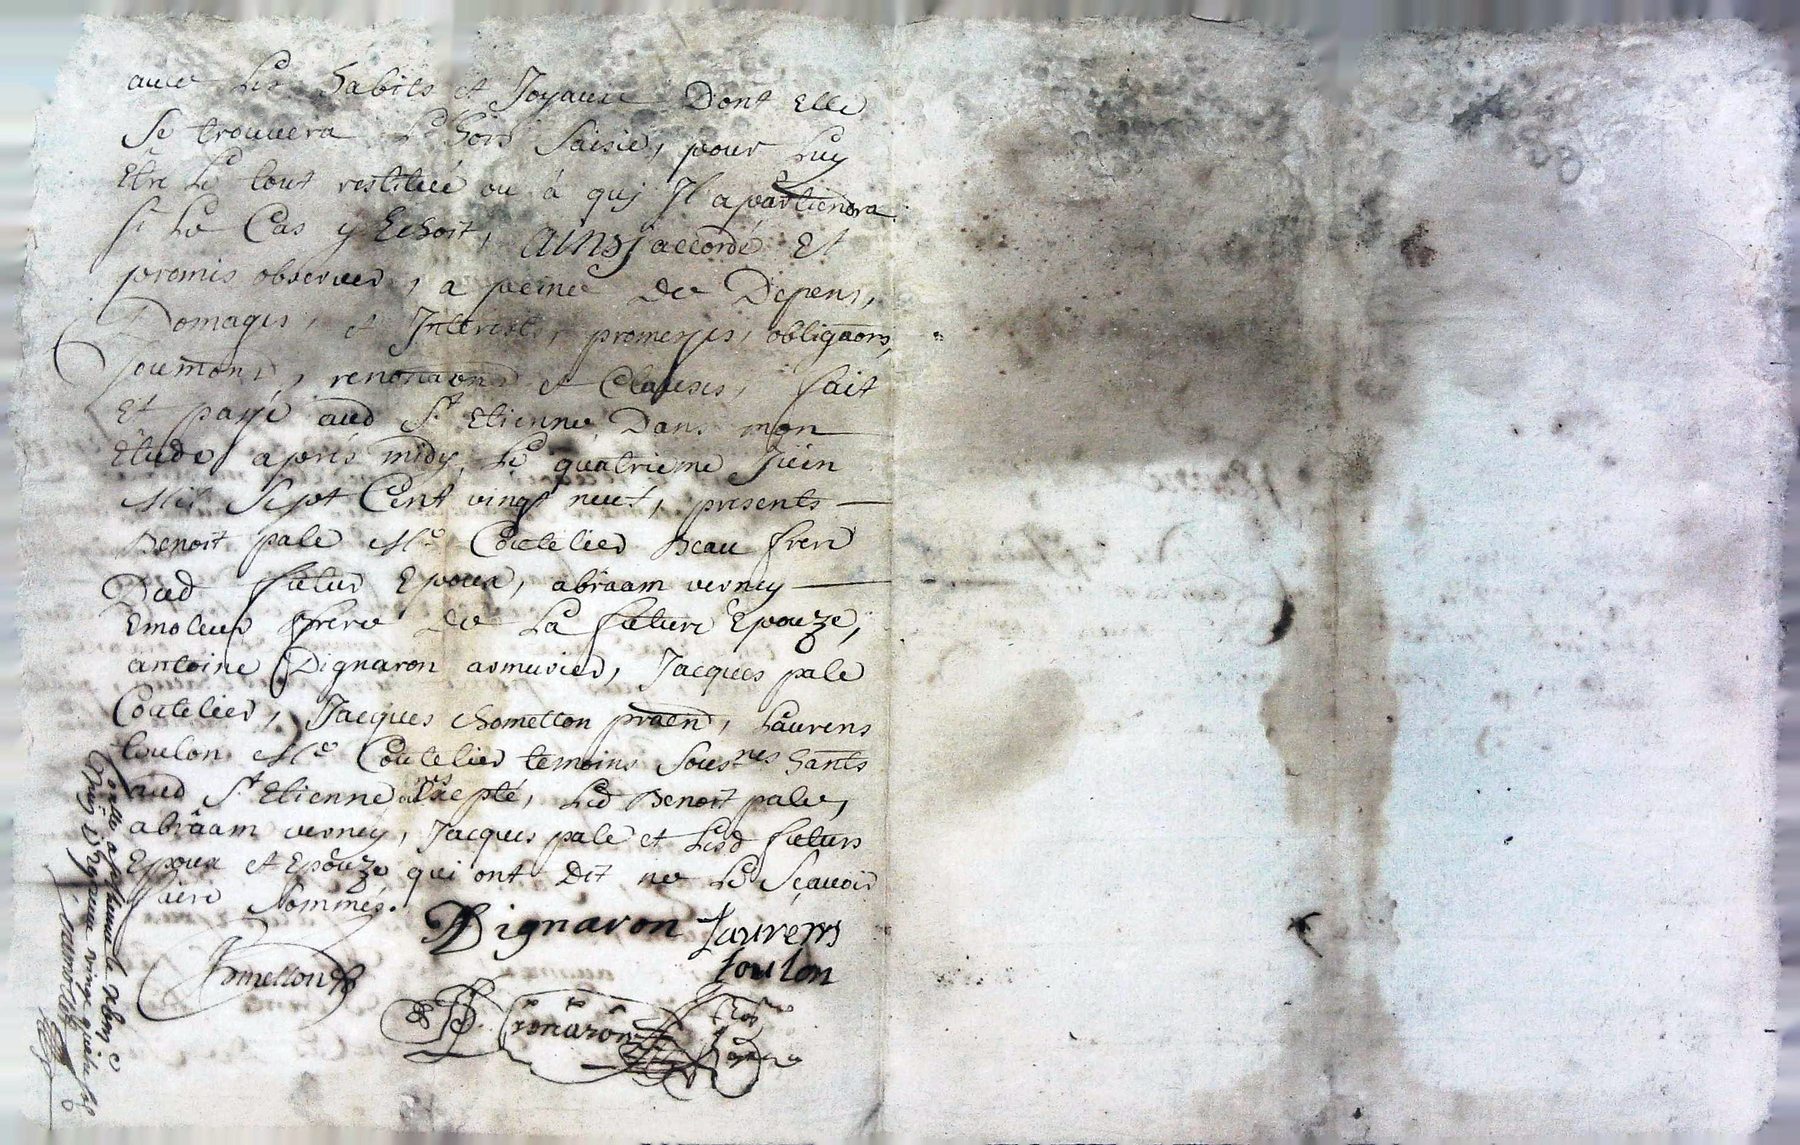 avec les habits et Joyaux Dont Elle
se trouvera Lhors saisie, pour luy
Etre le tout restitué ou à quj Jl apartiendra
si le Cas y Echoit, Ainsj accordé Et
promis observer, a peine de Depens,
Domages, et Jnterests, promesses, obligaons,
soumons, renonaons et Clauses, fait
Et passé aud St Etienne Dans mon
Etude après midy, le quatrieme Juin
Mil Sept Cent vingt neuf, presents
Benoit pale Me Coutelier Beau frere
Dud futur Epoux, abraam verney
Emoleur frere de La future Epouze,
antoine Dignaron armurier, Jacques pale
Coutelier, Jacques Chometton pratn, Laurens
toulon Me Coutelier temoins sousnes hants
aud St Etienne Excepté, led Benoit pale,
abraam verney, Jacques pale et Lesd futurs
Epoux et Epouze qui ont Dit ne le Sçavoir
faire sommés.
Dignaron Laurens
toulon
Chometton
Cronazon